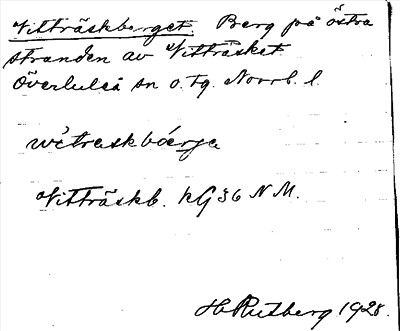 Vitträskberget. Berg på östra
stranden av Vitträsket
Överluleå sn o. tg. Norrb. l.
Vitträskb. KG 36 N M.
H Rutberg 1928.